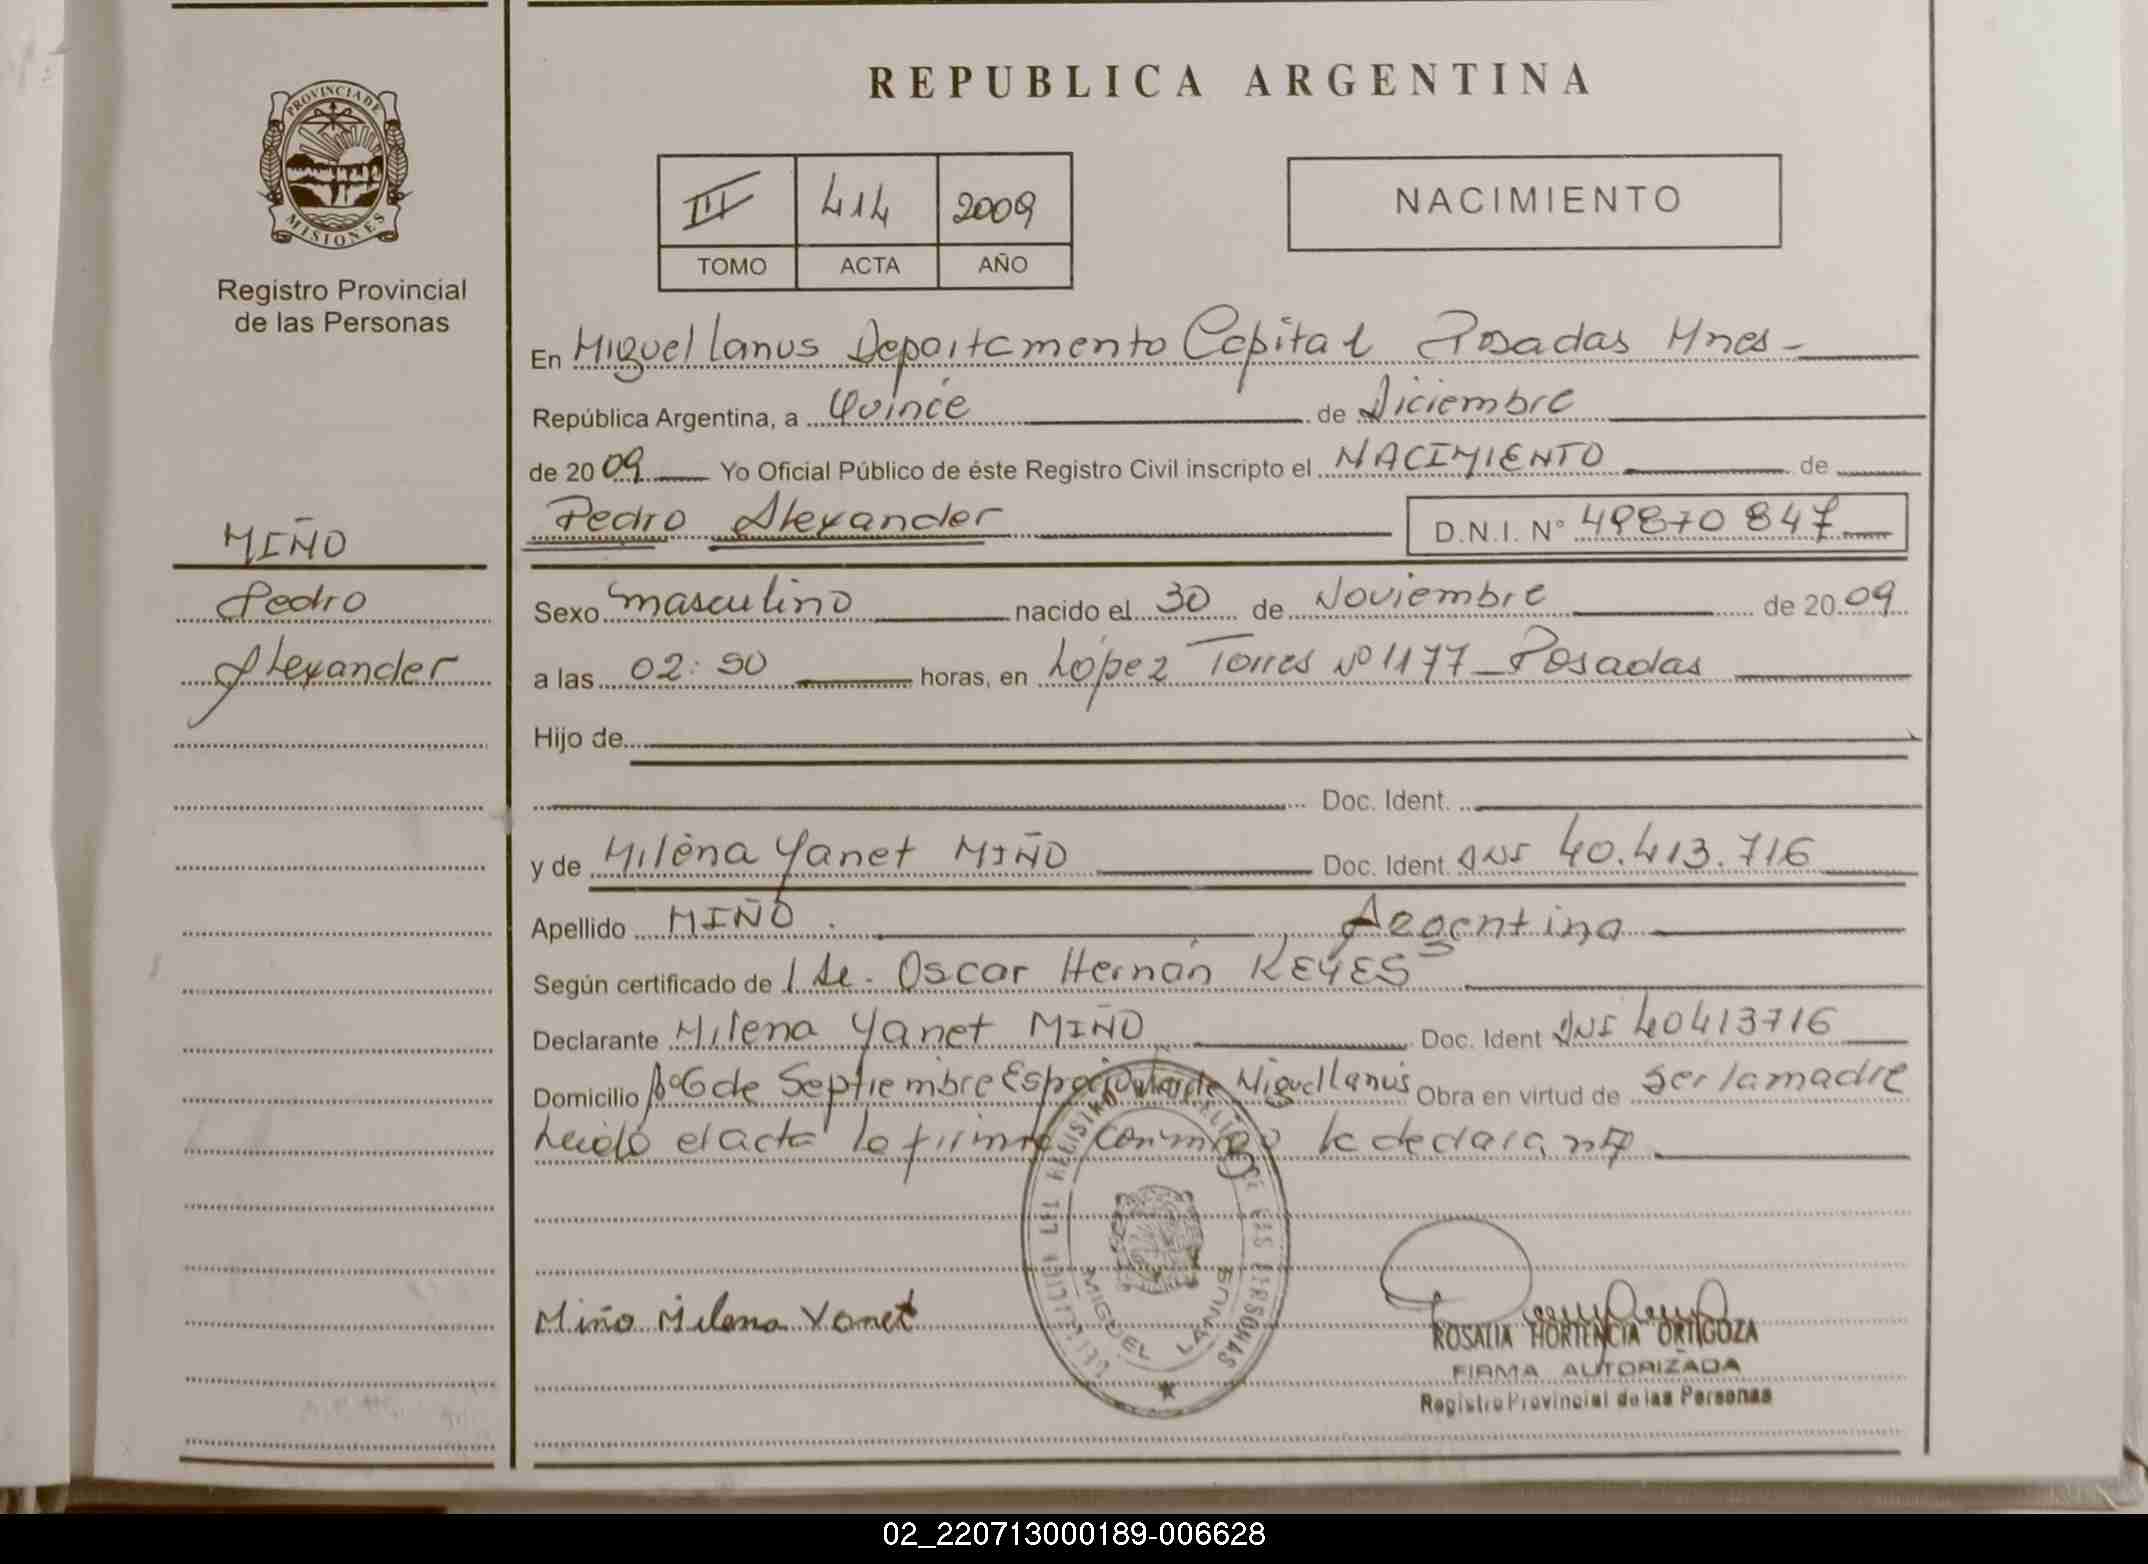 REPUBLICA ARGENTINA
PROVINCIA DE
MISIONES
Registro Provincial
de las Personas
III 414 2009
TOMO ACTA AÑO
NACIMIENTO
En Miguel Lanus Departamento Capital Posadas Mnes-
República Argentina, a Quince de Diciembre
de 2009 Yo Oficial Público de éste Registro Civil inscripto el NACIMIENTO de
Pedro Alexander D.N.I. Nº 49870 847
MIÑO
Pedro
Alexander
Sexo masculino nacido el 30 de Noviembre de 2009
a las 02:50 horas, en López Torres Nº 1177 - Posadas
Hijo de
Doc. Ident.
y de Milena Yanet MIÑO Doc. Ident. DNI 40.413.716
Apellido MIÑO. Argentina
Según certificado de Oscar Hernán REYES
Declarante Milena Yanet MIÑO Doc. Ident DNI 40413716
Domicilio Bº 6 de Septiembre Miguel Lanus Obra en virtud de Ser la madre
Leido el acta la firma conmigo la declarante
Miño Milena Yanet
MIGUEL LANUS
ROSALIA HORTENCIA ORTIGOZA
FIRMA AUTORIZADA
Registro Provincial de las Personas
02_220713000189-006628